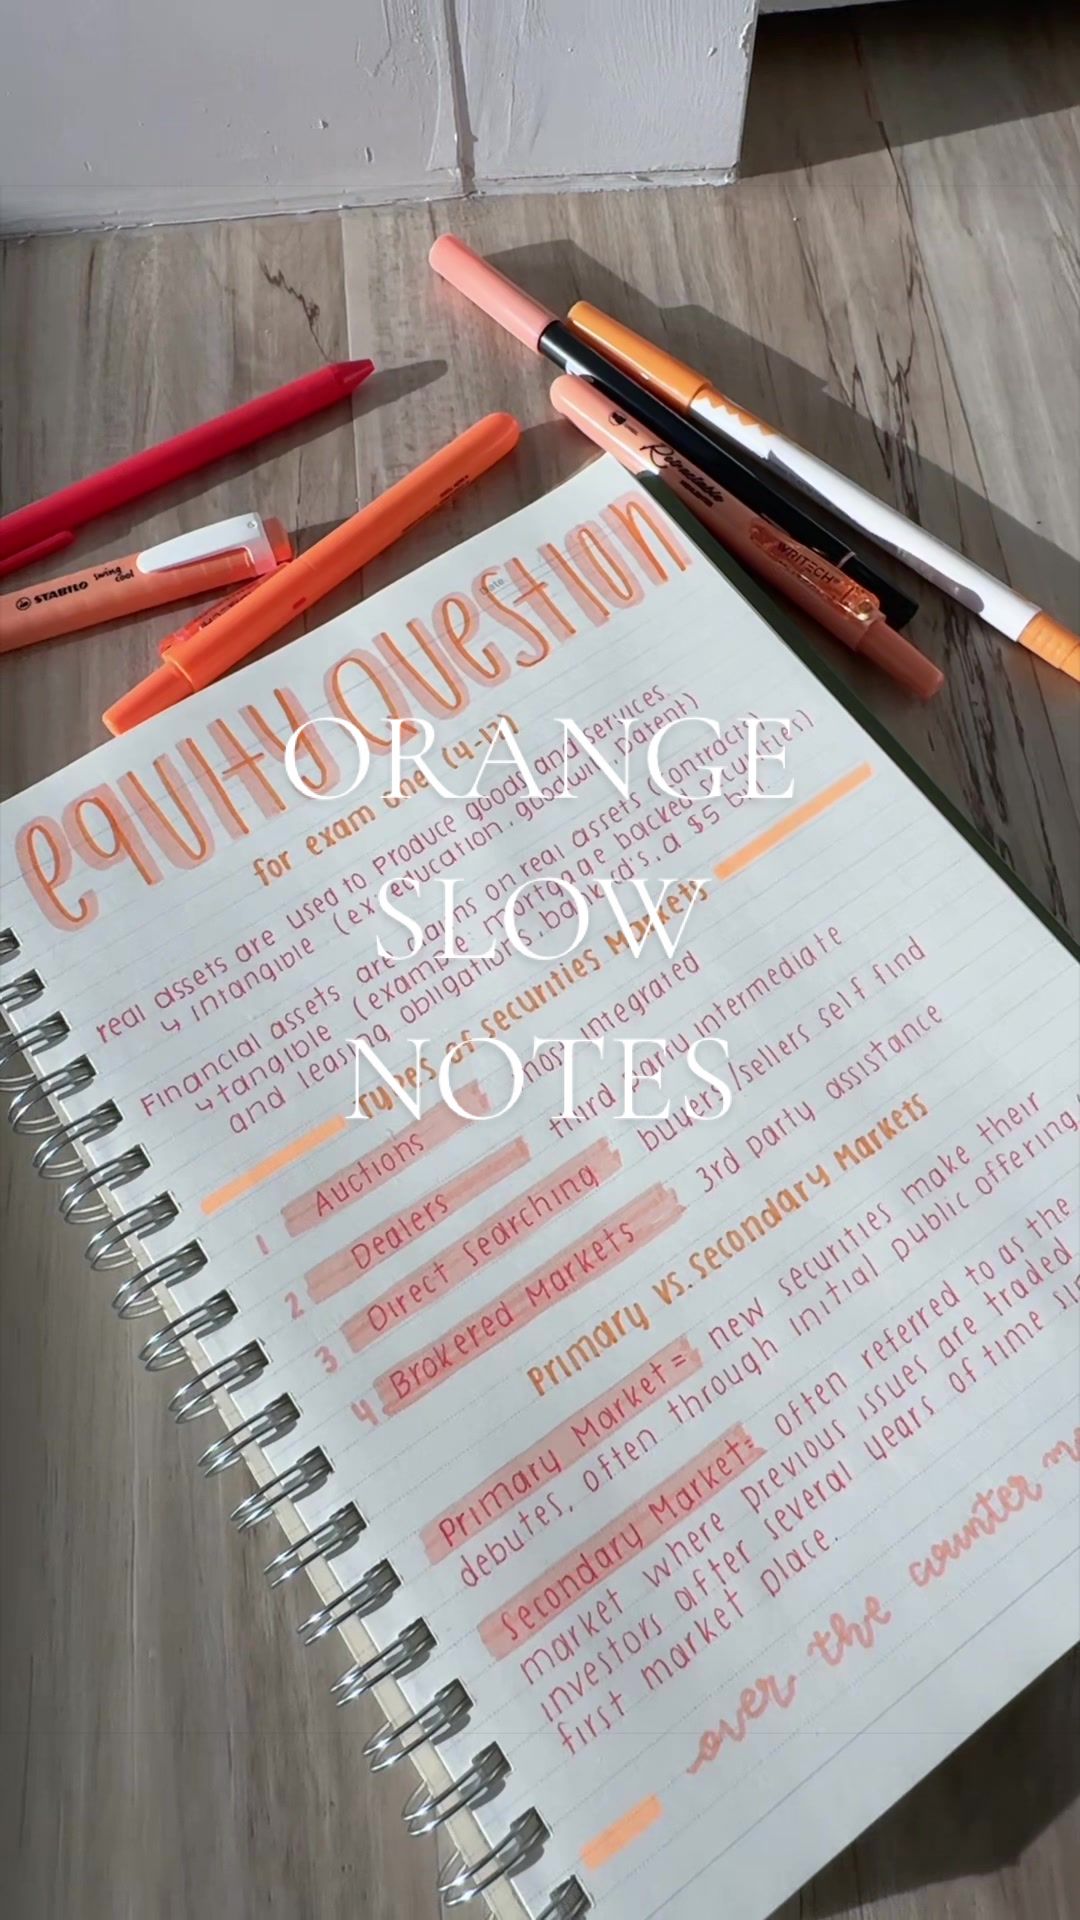 STABILO swing cool
Retractable
WRITECH
Date
equity Question
for exam one (4-17)
real assets are used to produce goods and services
↳ intangible (ex: education, goodwill, patent)
Financial assets are claims on real assets (contracts)
↳ tangible (example: mortgage backed securities)
and leasing obligations, bank cd's, a $5 bill
Types of securities Markets
1 Auctions most integrated
2 Dealers third party intermediate
3 Direct Searching buyers/sellers self find
4 Brokered Markets 3rd party assistance
Primary vs. Secondary Markets
Primary Market = new securities make their
debutes, often through initial public offering
Secondary Market= often referred to as the
market where previous issues are traded
investors after several years of time
first market place.
over the counter
ORANGE
SLOW
NOTES